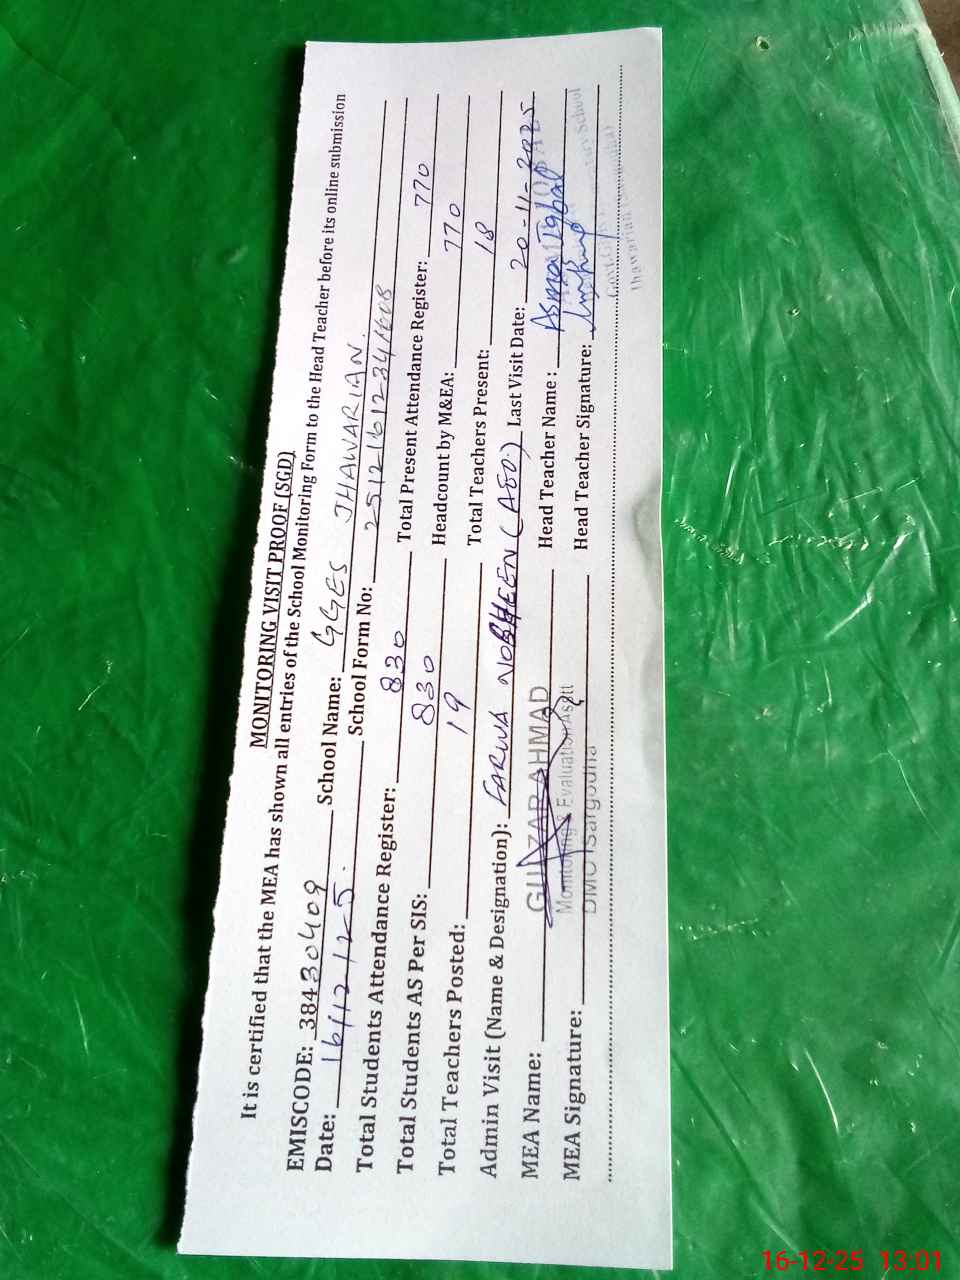 MONITORING VISIT PROOF (SGD)
It is certified that the MEA has shown all entries of the School Monitoring Form to the Head Teacher before its online submission
EMISCODE: 38430409 School Name: GGES JHAWARIAN.
Date: 16/12/25. School Form No:
Total Students Attendance Register: 830 Total Present Attendance Register: 770
Total Students AS Per SIS: 830 Headcount by M&EA: 770
Total Teachers Posted: 19 Total Teachers Present: 18
Admin Visit (Name & Designation): FARWA NOSHEEN (AEO.) Last Visit Date: 20-11-2025
MEA Name: GULZAR AHMAD Head Teacher Name: Asma Iqbal
Monitoring & Evaluation Asstt
MEA Signature: Head Teacher Signature:
DMO Sargodha
School
Jhawarian
16-12-25 13:01